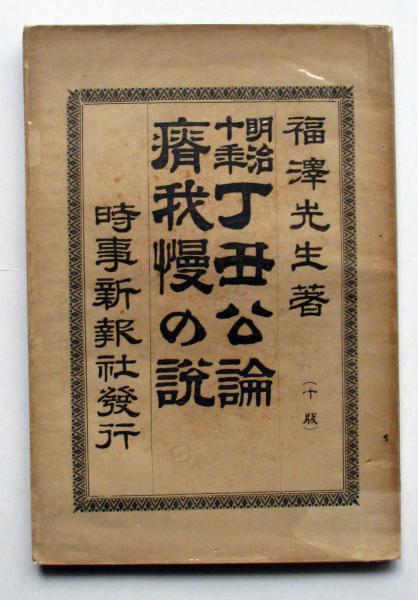 福澤先生著
(十版)
明治十年丁丑公論
瘠我慢の説
時事新報社發行